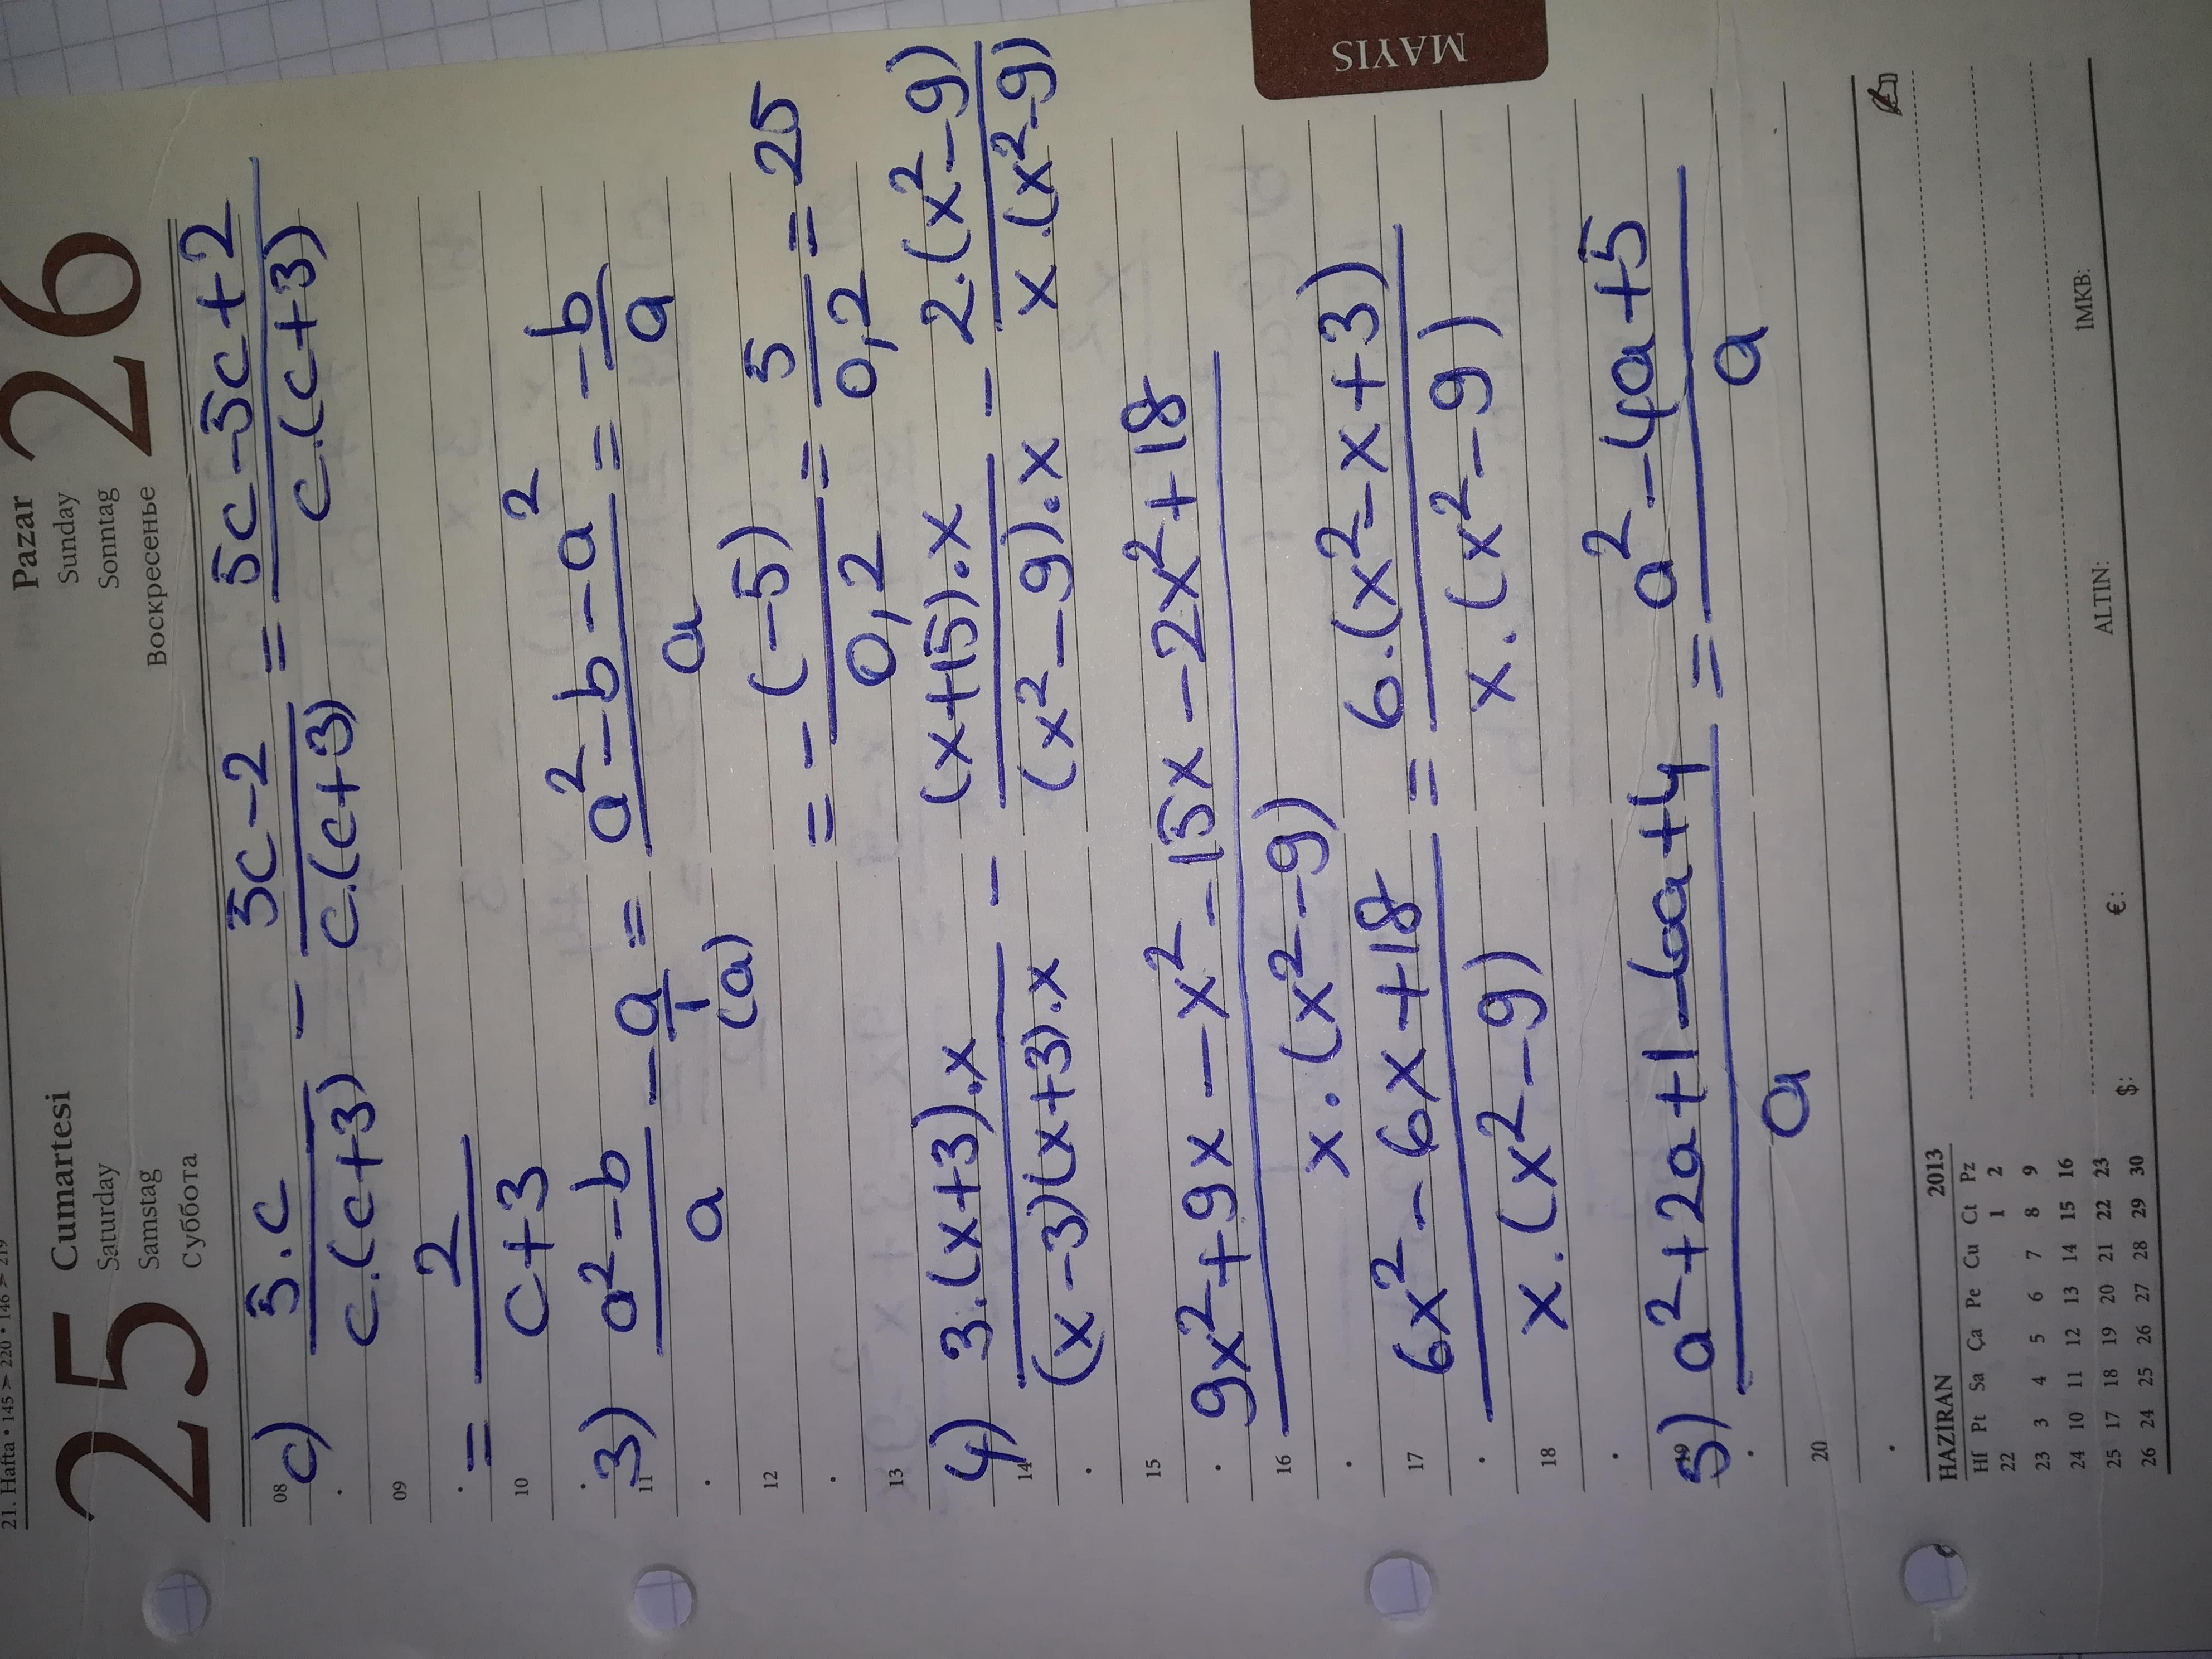 21. Hafta • 145 > 220 • 146 > 219
25 Cumartesi
Saturday
Samstag
Суббота
Pazar 26
Sunday
Sonntag
Воскресенье
08
c) 5.c/c.(c+3) - 5c-2/c.(c+3) = 5c-5c+2/c.(c+3)
09
= 2/c+3
10
3) a²-b/a - a/1 (a) = a²-b-a²/a = -b/a
11
12
= - (-5)/0,2 = 5/0,2 = 25
13
4) 3.(x+3).x/(x-3)(x+3).x - (x+15).x/(x²-9).x - 2.(x²-9)/x.(x²-9)
14
15
9x²+9x-x²-15x-2x²+18/x.(x²-9)
16
17
6x²-6x+18/x.(x²-9) = 6.(x²-x+3)/x.(x²-9)
18
5) a²+2a+1-6a+4/a = a²-4a+5/a
20
MAYIS
HAZİRAN 2013
Hf Pt Sa Ça Pe Cu Ct Pz
22 1 2
23 3 4 5 6 7 8 9
24 10 11 12 13 14 15 16
25 17 18 19 20 21 22 23
26 24 25 26 27 28 29 30
$: €: ALTIN: IMKB: